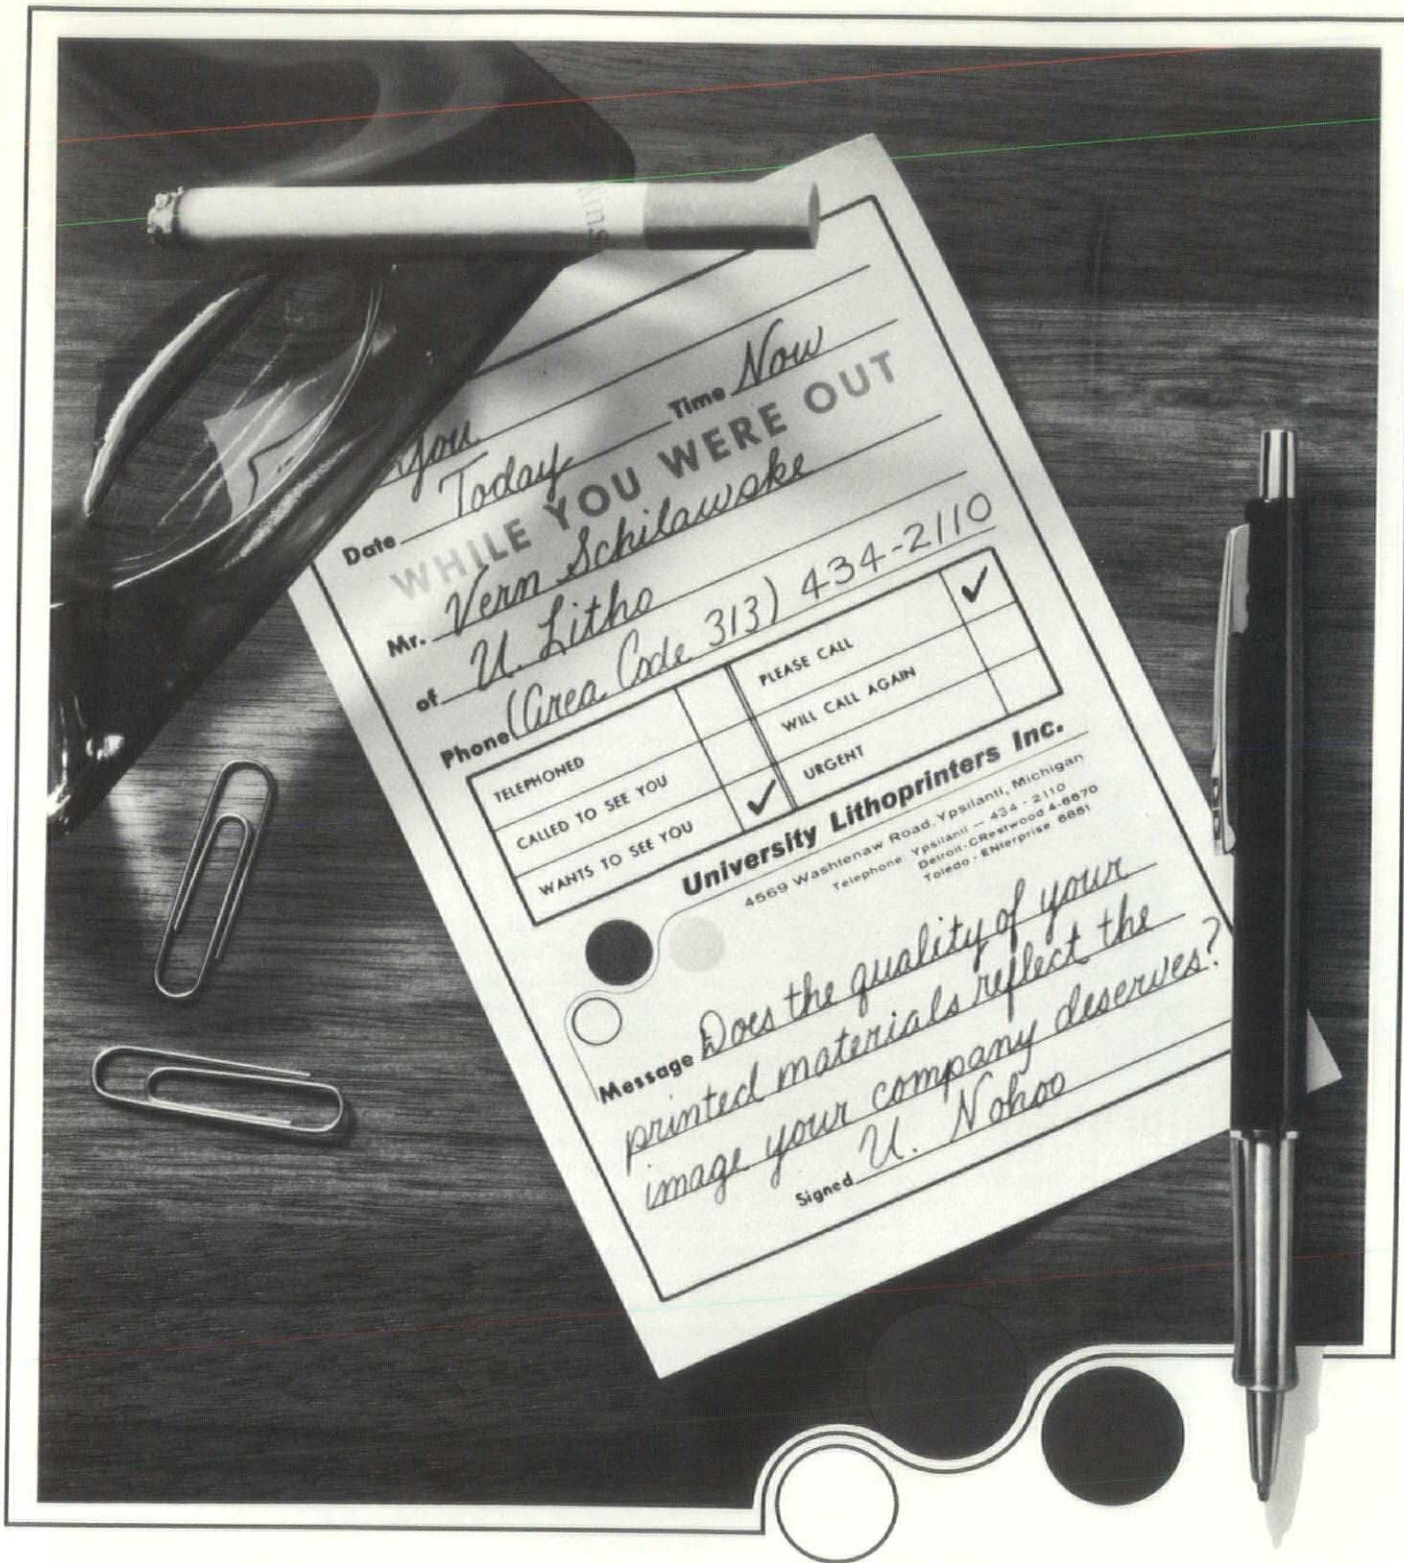 lins
You
Date Today Time Now
WHILE YOU WERE OUT
Mr. Vern Schilawske
of U. Litho
Phone (Area Code 313) 434-2110
TELEPHONED
PLEASE CALL ✓
CALLED TO SEE YOU
WILL CALL AGAIN
WANTS TO SEE YOU ✓
URGENT
University Lithoprinters Inc.
4569 Washtenaw Road, Ypsilanti, Michigan
Telephone Ypsilanti — 434 - 2110
Detroit - CRestwood 4-6870
Toledo - ENterprise 6881
Message Does the quality of your
printed materials reflect the
image your company deserves?
Signed U. Nohoo